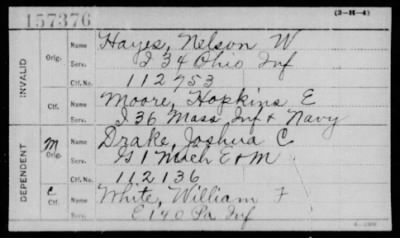 157376
(3-H-4)
INVALID
Orig.
Name Hayes, Nelson W
Serv. I 34 Ohio Inf
Ctf. No. 112953
Ctf.
Name Moore, Hopkins E
Serv. I 36 Mass Inf & Navy
DEPENDENT
M
Orig.
Name Drake, Joshua C
Serv. G 1 Mich E & M
Ctf. No. 112136
C
Ctf.
Name White, William F
Serv. E 140 Pa Inf